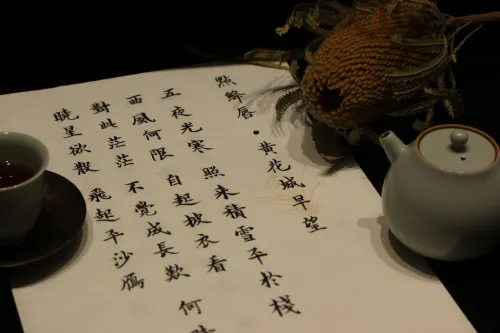 點絳唇・黃花城早望
五夜光寒 照來積雪平於棧
西風何限 自起披衣看
對此茫茫 不覺成長歎 何
曉星欲散 飛起平沙雁